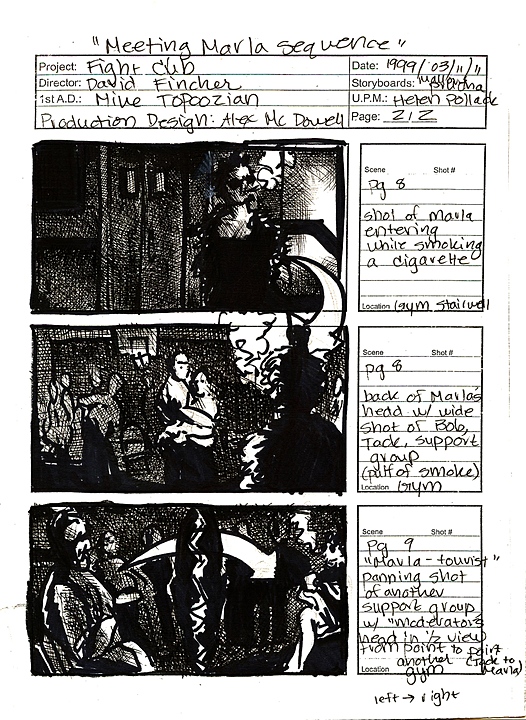 "Meeting Marla sequence"
Project: Fight Club
Date: 1999/03/11/11
Director: David Fincher
Storyboards: Brianna
1st A.D.: Mike Topoozian
U.P.M.: Helen Pollack
Production Design: Alex Mc Dowell
Page: 2/2
Scene Shot #
pg 8
shot of Marla
entering
while smoking
a cigarette
Location Gym stairwell
Scene Shot #
pg 8
back of Marla's
head w/ wide
shot of Bob,
Jack, support
group
(puff of smoke)
Location Gym
Scene Shot #
Pg 9
"Marla-tourist"
panning shot
of another
support group
w/ "moderators
head in 1/2 view
from point to point
another (Jack to
Marla)
Location gym
left → right